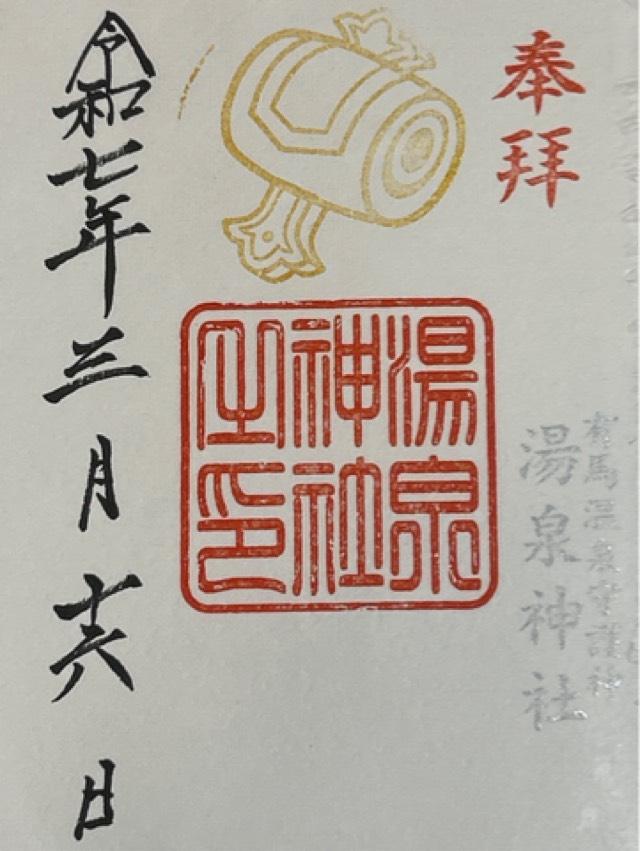 奉拝
有馬温泉守護神
湯泉神社
湯泉
神社
之印
令和七年三月十六日